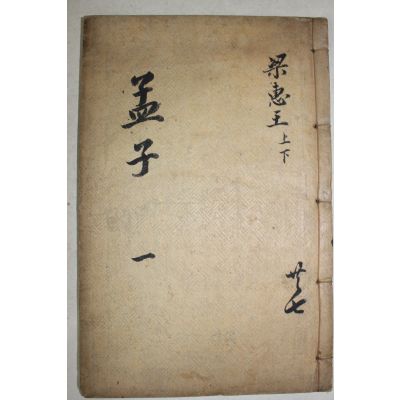 梁惠王上下
共七
孟子 一